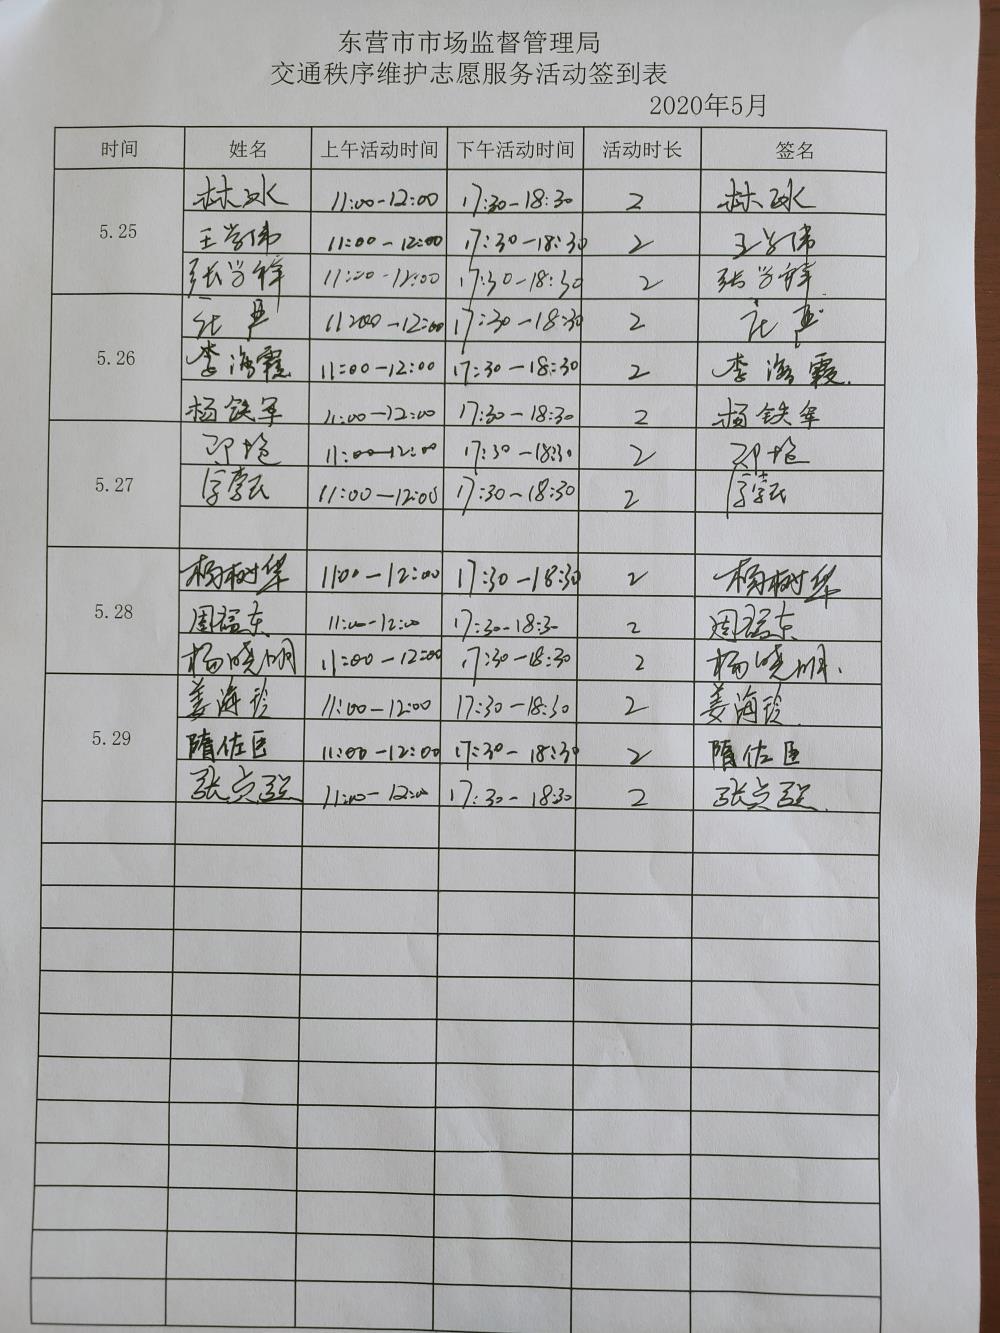 东营市市场监督管理局
交通秩序维护志愿服务活动签到表
2020年5月
时间 姓名 上午活动时间 下午活动时间 活动时长 签名
5.25
林冰 11:00-12:00 17:30-18:30 2 林冰
王学伟 11:00-12:00 17:30-18:30 2 王学伟
张学祥 11:00-12:00 17:30-18:30 2 张学祥
5.26
12:00 17:30-18:30 2
李海霞 11:00-12:00 17:30-18:30 2 李海霞.
杨铁军 11:00-12:00 17:30-18:30 2 杨铁军
5.27
11:00-12:00 17:30-18:30 2
11:00-12:00 17:30-18:30 2
5.28
杨树华 11:00-12:00 17:30-18:30 2 杨树华
周福东 11:00-12:00 17:30-18:30 2 周福东
杨晓明 11:00-12:00 17:30-18:30 2 杨晓明.
5.29
姜海玲 11:00-12:00 17:30-18:30 2 姜海玲.
隋佐臣 11:00-12:00 17:30-18:30 2 隋佐臣
11:00-12:00 17:30-18:30 2